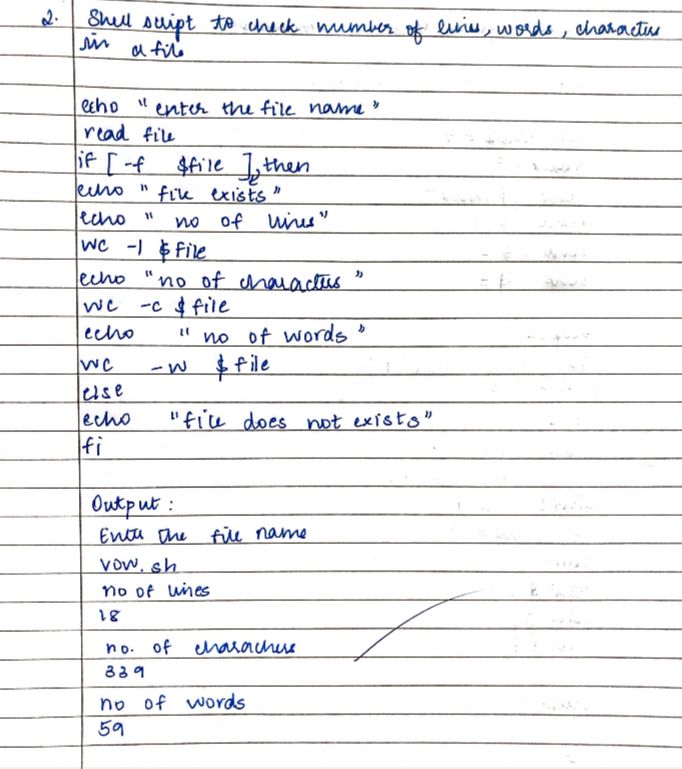 2. Shell script to check number of lines, words, characters
in a file
echo "enter the file name"
read file
if [ -f $file ], then
echo "file exists"
echo " no of lines"
wc -l $file
echo "no of characters"
wc -c $file
echo " no of words"
wc -w $file
else
echo "file does not exists"
fi
Output :
Enter the file name
vow.sh
no of lines
18
no. of charachers
339
no of words
59